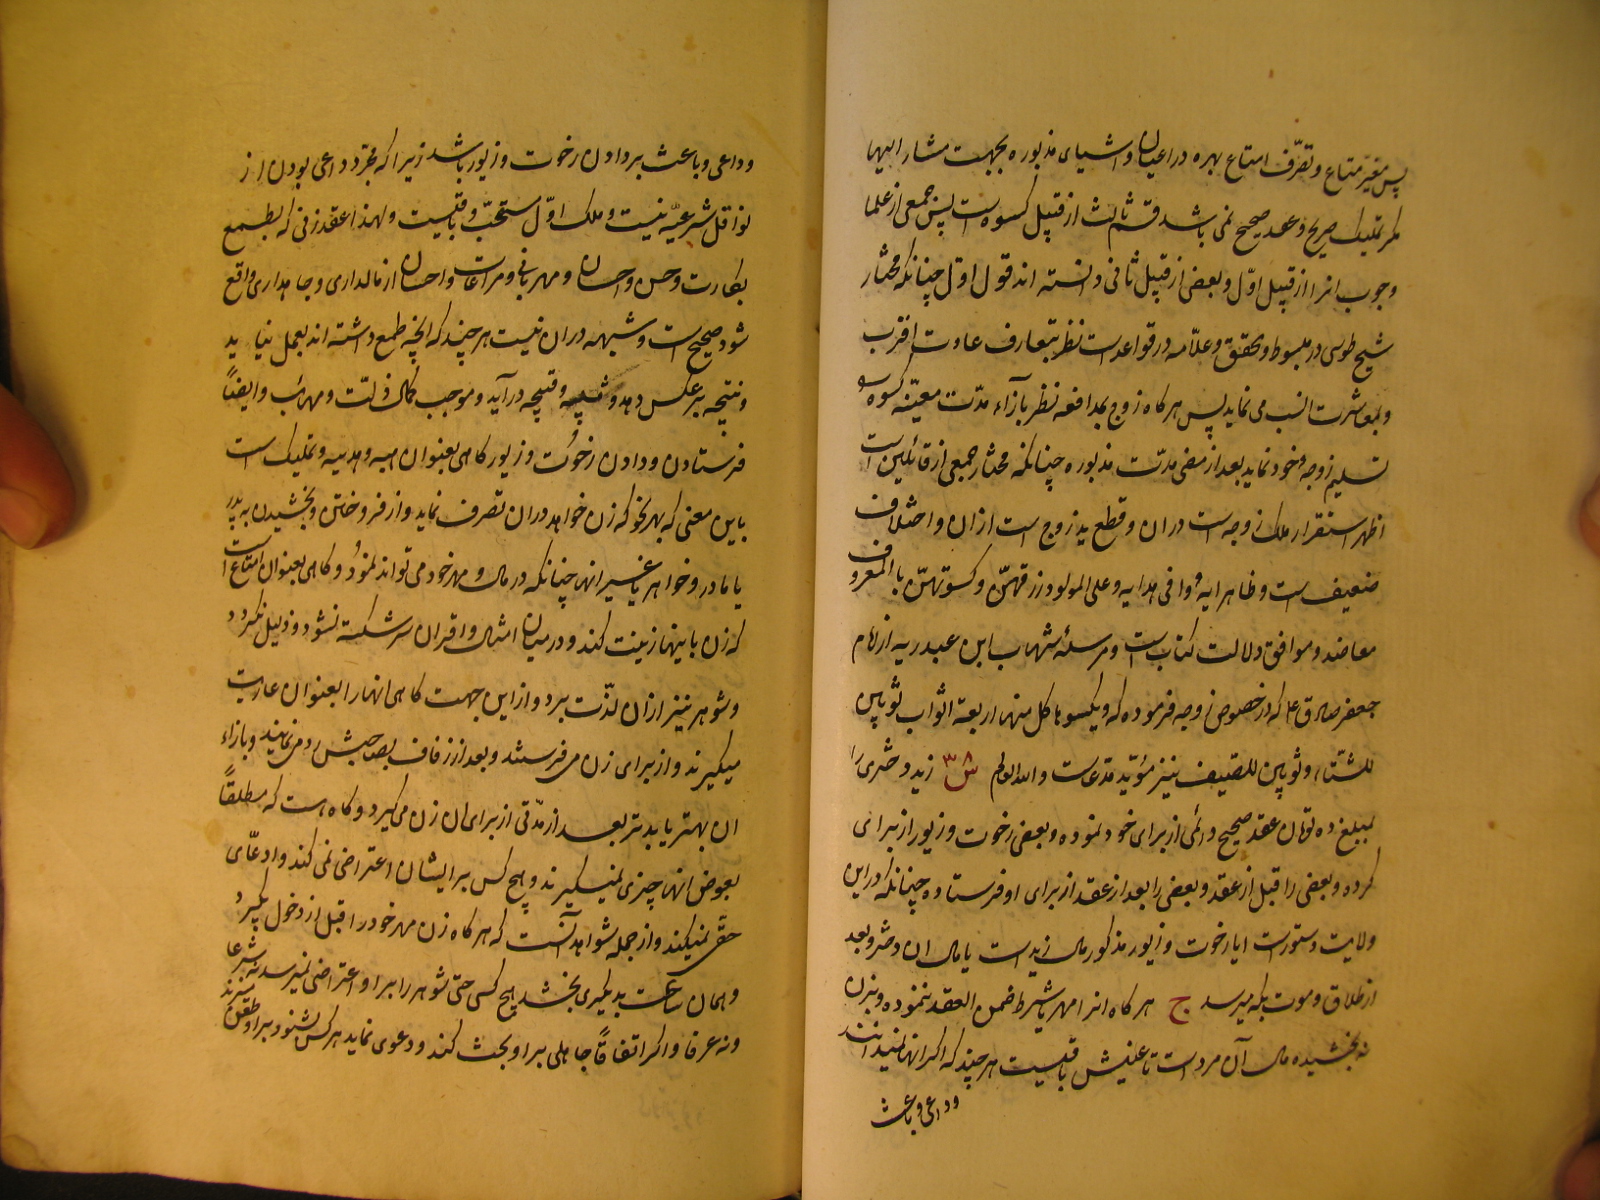 پس بغیر متاع و تصرّف امتاع بهره در اعیان و اشیای مذبوره بجهت مشار الیها
مکر تملیک صریح و عقد صحیح نمی باشد قسم ثالث از قبیل کسوه است پس جمعی از علما
وجوب انرا از قبیل اوّل و بعضی از قبیل ثانی دانسته اند قول اوّل چنانکه مختار
شیخ طوسی در مبسوط و محقق و علّامه در قواعد است نظر بتعارف عادت اقرب
و بمعاشرت انسب می نماید پس هر کاه زوج بمدافعه نظر بازآء مدّت معیّنه کسوه
تسلیم زوجه خود نماید بعد از مضی مدّت مذبوره چنانکه مختار جمعی از قائلین است
اظهر استقرار ملک زوجه است در ان و قطع ید زوج است از ان و اختلاف
ضعیف است و ظاهر ایه وافی هدایه و علی المولود له رزقهنّ و کسوتهنّ بالمعروف
معاضد و موافق دلالت کتاب است و مرسلهٔ شهاب ابن عبد ربه از امام
جعفر صادق ع که در خصوص زوجه فرموده که و یکسوها کل سنه اربعة اثواب ثوبین
للشتاء و ثوبین للصیف نیز مؤیّد مدّعاست و الله العالم س ۳ زید دختری را
بمبلغ ده تومان عقد صحیح دائمی از برای خود نموده و بعضی رخوت و زیور از برای
کرده و بعضی را قبل از عقد و بعضی را بعد از عقد از برای او فرستاده چنانکه در این
ولایت دستور است ایا رخوت و زیور مذکور مال زید است یا مال ان دختر و بعد
از طلاق و موت بکه میرسد ج هر کاه انرا مهر یا شرط ضمن العقد ننموده و بزن
نه بخشیده مال آن مرد است تا عینش باقیست هر چند که اکر انها نمیدانند
و داعی و باعث
و داعی و باعث بر دادن رخوت و زیور باشد زیرا که مجرّد داعی بودن از
نواقل شرعیّه نیست و ملک اوّل مستحبّ و باقیست و لهذا عقد زنی که بطمع
بکارت و حسن و احسان و مهربانی و مراعات و احسان از مالداری و جاهداری واقع
شود صحیح است و شبهه در ان نیست هر چند که انچه طمع داشته اند بعمل نیاید
و نتیجه بر عکس دهد و ثیّبه و قبیحه درآید و موجب کمال ذلّت و مهر و ایضاً
فرستادن و دادن رخوت و زیور کاهی بعنوان هبه و هدیه و تملیک است
باین معنی که بهر نحو که زن خواهد در ان تصرف نماید و از فروختن و بخشیدن به پدر
یا مادر و خواهر یا غیر انها چنانکه در مال و مهر خود می تواند نمود و کاهی بعنوان امتاع است
که زن باینها زینت کند و در میان امثال و اقران سرشکسته نشود و ذلیل نکردد
و شوهر نیز از ان لذّت برد و از این جهت کاهی انها را بعنوان عاریت
میکیرند و از برای زن می فرستند و بعد از زفاف بصاحبش رد می نمایند و بازاء
ان بهتر یا بدتر بعد از مدّتی از برای ان زن می کیرد و کاه هست که مطلقاً
بعوض انها چیزی نمیکیرند و هیچ کس بر ایشان اعتراضی نمی کند و ادّعای
حقی نمیکند و از جمله شواهد آنست که هر کاه زن مهر خود را قبل از دخول بکیرد
و همان ساعت بدیکری بخشد هیچ کسی حتی شوهر را بر او اعتراضی نمیرسد نه شرعا
و نه عرفا و اکر اتفاقاً جاهلی بر او بحث کند و دعوی نماید هر کس بشنود بر او طعن میزند